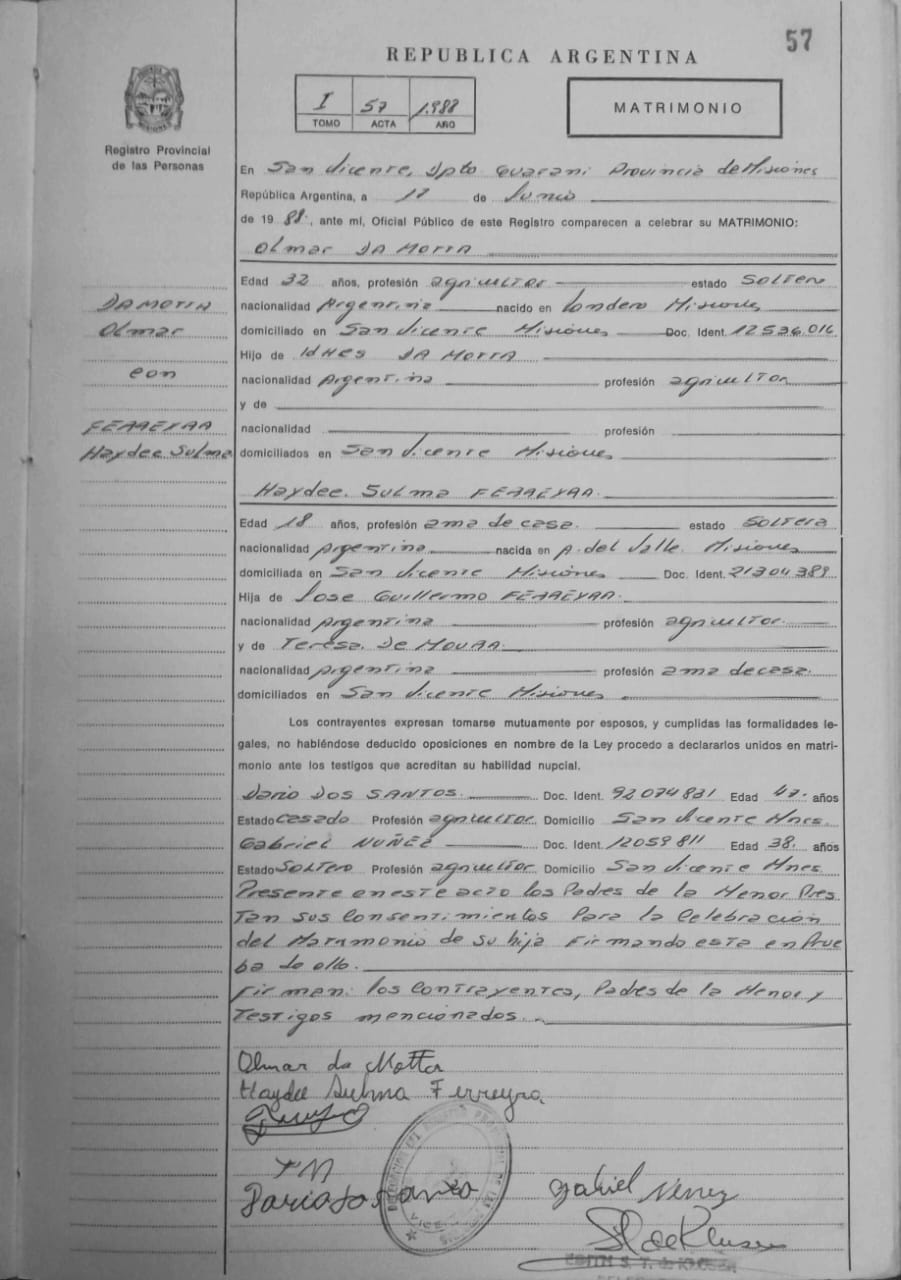 57
REPUBLICA ARGENTINA
I 57 1.988
TOMO ACTA AÑO
MATRIMONIO
Registro Provincial
de las Personas
En San Vicente, Dpto Guarani Provincia de Misiones
República Argentina, a de Junio
de 1988, ante mí, Oficial Público de este Registro comparecen a celebrar su MATRIMONIO:
Olmar DA MOTTA
Edad 32 años, profesión agricultor estado SOLTERO
DA MOTTA
nacionalidad Argentina nacido en Londero Misiones
Olmar
domiciliado en San Vicente Misiones Doc. Ident. 12.536.016
Hijo de DA MOTTA
con
nacionalidad Argentina profesión agricultor
y de
FERREYRA
nacionalidad profesión
Haydee Sulma
domiciliados en San Vicente Misiones
Haydee. Sulma FERREYRA.
Edad 18 años, profesión ama de casa. estado SOLTERA
nacionalidad Argentina nacida en A. del Valle. Misiones
domiciliada en San Vicente Misiones Doc. Ident. 21304.389
Hija de Jose Guillermo FERREYRA.
nacionalidad Argentina profesión agricultor.
y de Teresa. De MOURA.
nacionalidad Argentina profesión ama de casa.
domiciliados en San Vicente Misiones
Los contrayentes expresan tomarse mutuamente por esposos, y cumplidas las formalidades le-
gales, no habiéndose deducido oposiciones en nombre de la Ley procedo a declararlos unidos en matri-
monio ante los testigos que acreditan su habilidad nupcial.
Dario DOS SANTOS. Doc. Ident. 92074831 Edad 47. años
Estado Casado Profesión agricultor. Domicilio San Vicente Mnes.
Gabriel NUÑEZ Doc. Ident. 12059811 Edad 38. años
Estado SOLTERO Profesión agricultor. Domicilio San Vicente Mnes
Presente en este acto los Padres de la Menor Pres
tan sus Consentimientos Para la Celebracion
del Matrimonio de su hija Firmando esta en Prue
ba de ello.
Firman: los Contrayentes, Padres de la Menor y
Testigos mencionados.
Olmar da Motta
Haydee Sulma Ferreyra
Gabriel Nunez
EDITH S. T. de KLUSEN